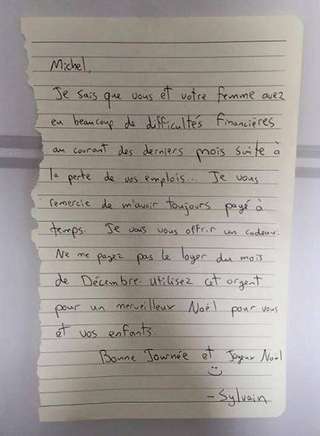 Michel,
Je sais que vous et votre femme avez
eu beaucoup de difficultés financières
au courant des derniers mois suite à
la perte de vos emplois... Je vous
remercie de m'avoir toujours payé à
temps. Je vais vous offrir un cadeau.
Ne me payez pas le loyer du mois
de Décembre. Utilisez cet argent
pour un merveilleux Noël pour vous
et vos enfants.
Bonne Journée et Joyeux Noël
- Sylvain